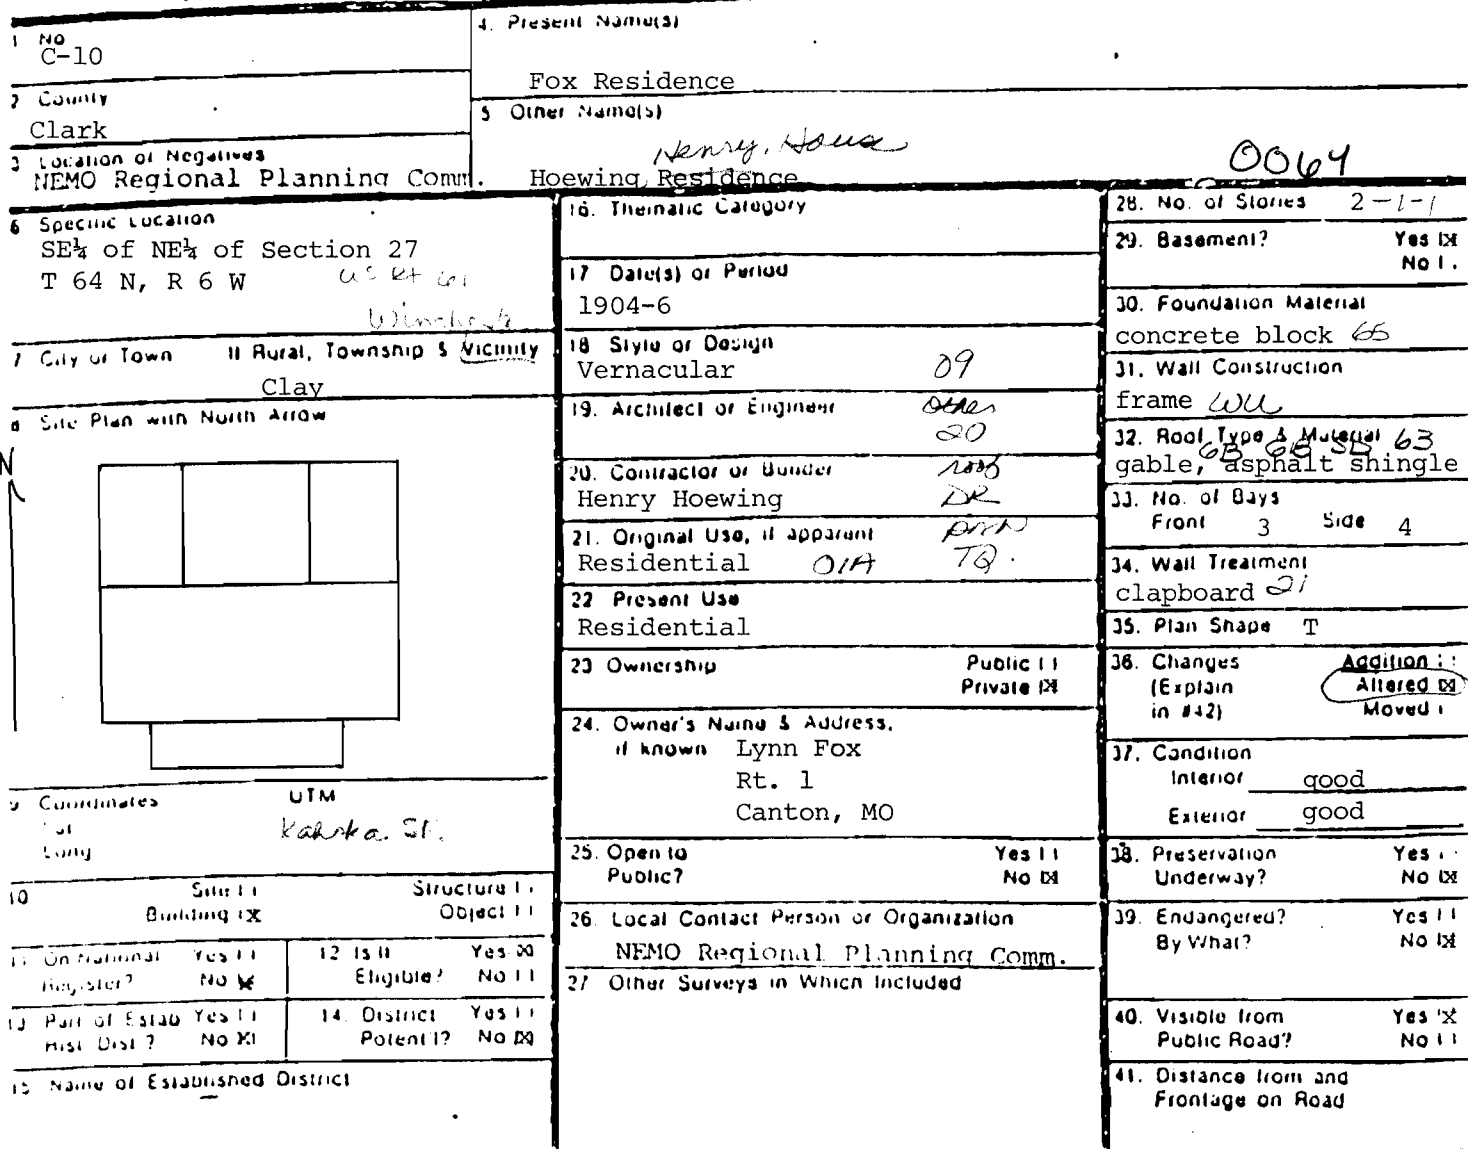 1 No
C-10
4. Present Name(s)
Fox Residence
2 County
Clark
5 Other Name(s)
Henry, House
Hoewing Residence
0064
3 Location of Negatives
NEMO Regional Planning Comm.
6 Specific Location
SE¼ of NE¼ of Section 27
T 64 N, R 6 W
US Rt 61
7 City or Town If Rural, Township & Vicinity
Clay
8 Site Plan with North Arrow
N
9 Coordinates UTM
Lat
Long
Kahoka. St.
10 Site Structure
Building X Object
11 On National Register? Yes No X
12 Is It Eligible? Yes X No
13 Part of Estab Hist. Dist.? Yes No X
14. District Potent'l? Yes No X
15 Name of Established District
16. Thematic Category
17 Date(s) or Period
1904-6
18 Style or Design
Vernacular 09
19. Architect or Engineer
Other
20
20. Contractor or Builder
Henry Hoewing
roof
DR
21. Original Use, if apparent
Residential 01A
TQ.
22 Present Use
Residential
23 Ownership Public
Private X
24. Owner's Name & Address,
if known Lynn Fox
Rt. 1
Canton, MO
25. Open to Yes
Public? No X
26. Local Contact Person or Organization
NEMO Regional Planning Comm.
27 Other Surveys in Which Included
28. No. of Stories 2-1-1
29. Basement? Yes X
No
30. Foundation Material
concrete block 65
31. Wall Construction
frame WU
32. Roof Type & Material 63
GB GB SD
gable, asphalt shingle
33. No. of Bays
Front 3 Side 4
34. Wall Treatment
clapboard 21
35. Plan Shape T
36. Changes Addition
(Explain Altered X
in #42) Moved
37. Condition
Interior good
Exterior good
38. Preservation Yes
Underway? No X
39. Endangered? Yes
By What? No X
40. Visible from Yes X
Public Road? No
41. Distance from and
Frontage on Road